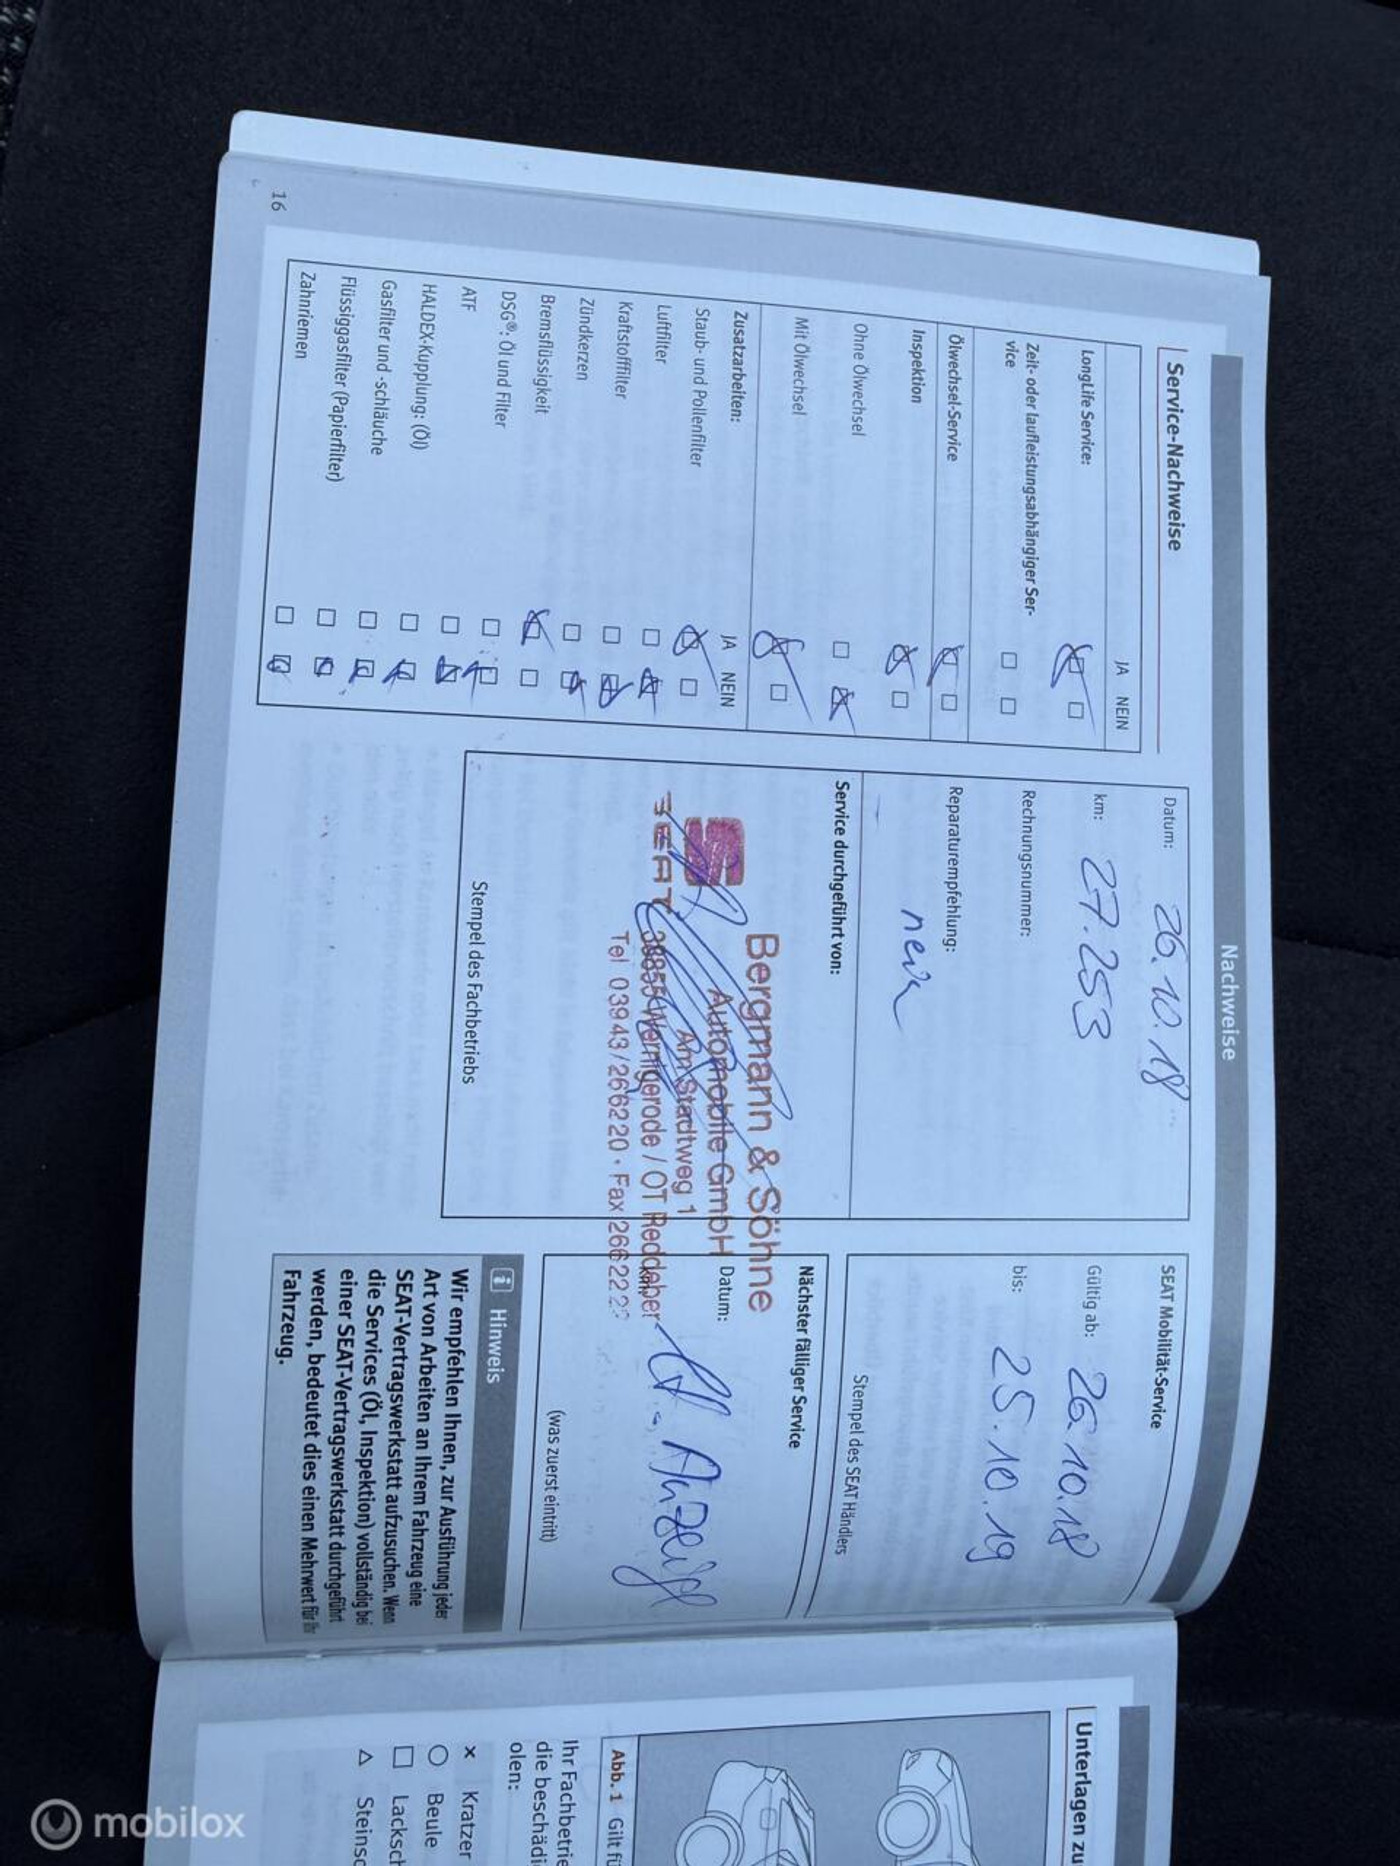 Nachweise
Service-Nachweise
JA NEIN
LongLife Service:
Zeit- oder laufleistungsabhängiger Ser-
vice
Ölwechsel-Service
Inspektion
Ohne Ölwechsel
Mit Ölwechsel
Zusatzarbeiten:
JA NEIN
Staub- und Pollenfilter
Luftfilter
Kraftstofffilter
Zündkerzen
Bremsflüssigkeit
DSG®: Öl und Filter
ATF
HALDEX-Kupplung: (Öl)
Gasfilter und -schläuche
Flüssiggasfilter (Papierfilter)
Zahnriemen
16
Datum: 26.10.18
km: 27.253
Rechnungsnummer:
Reparaturempfehlung:
nein
Service durchgeführt von:
Bergmann & Söhne
Automobile GmbH
Am Stadtweg 1
SEAT 38855 Wernigerode / OT Reddeber
Tel 03943/266220 · Fax 266222
Stempel des Fachbetriebs
SEAT Mobilität-Service
Gültig ab: 26.10.18
bis: 25.10.19
Stempel des SEAT Händlers
Nächster fälliger Service
Datum:
lt. Anzeige
km:
(was zuerst eintritt)
i Hinweis
Wir empfehlen Ihnen, zur Ausführung jeder
Art von Arbeiten an Ihrem Fahrzeug eine
SEAT-Vertragswerkstatt aufzusuchen. Wenn
die Services (Öl, Inspektion) vollständig bei
einer SEAT-Vertragswerkstatt durchgeführt
werden, bedeutet dies einen Mehrwert für Ihr
Fahrzeug.
Unterlagen zu
Abb. 1 Gilt fü
Ihr Fachbetrie
die beschädi
olen:
× Kratzer
○ Beule
□ Lacksch
△ Steinsc
mobilox